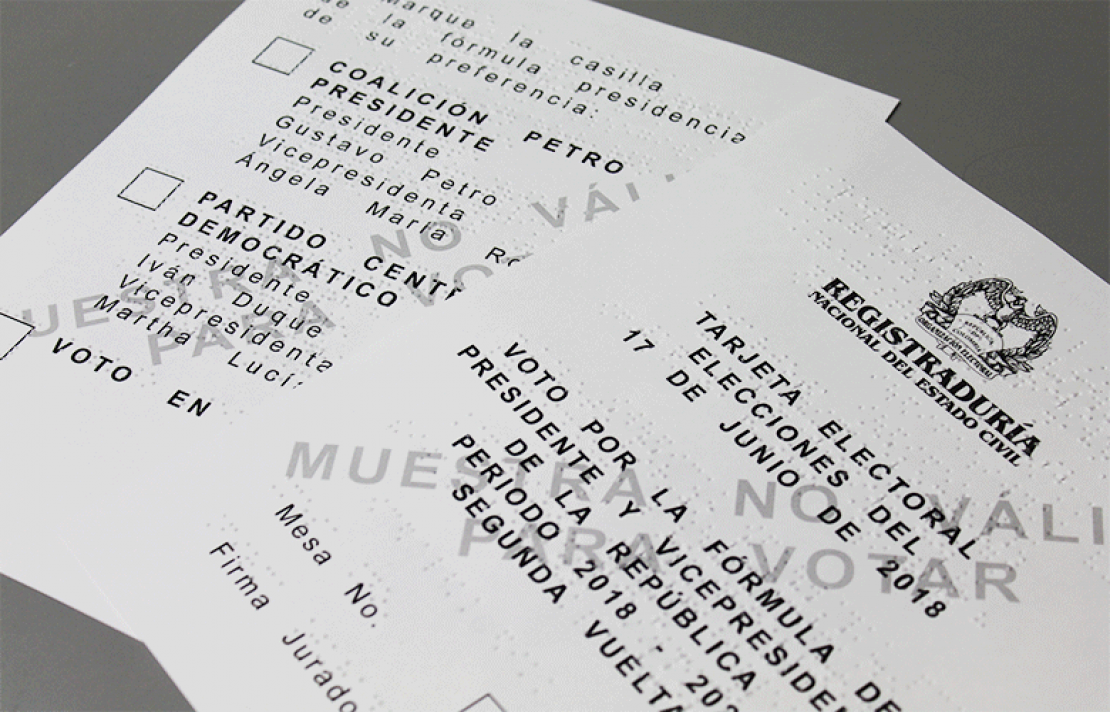 Marque la casilla
de la fórmula presidencia
de su preferencia:
COALICIÓN PETRO
PRESIDENTE
Presidente
Gustavo Petro
Vicepresidenta
Ángela María
PARTIDO
DEMOCRÁTICO
Presidente
Iván Duque
Vicepresidenta
Martha
VOTO EN
MUESTRA NO
PARA
REGISTRADURÍA
NACIONAL DEL ESTADO CIVIL
TARJETA ELECTORAL
ELECCIONES DEL
17 DE JUNIO DE 2018
VOTO POR LA FÓRMULA DE
PRESIDENTE Y
DE LA REPÚBLICA
PERIODO 2018 -
SEGUNDA VUELTA
MUESTRA NO VÁLI
PARA VOTAR
Mesa No.
Firma Jurado